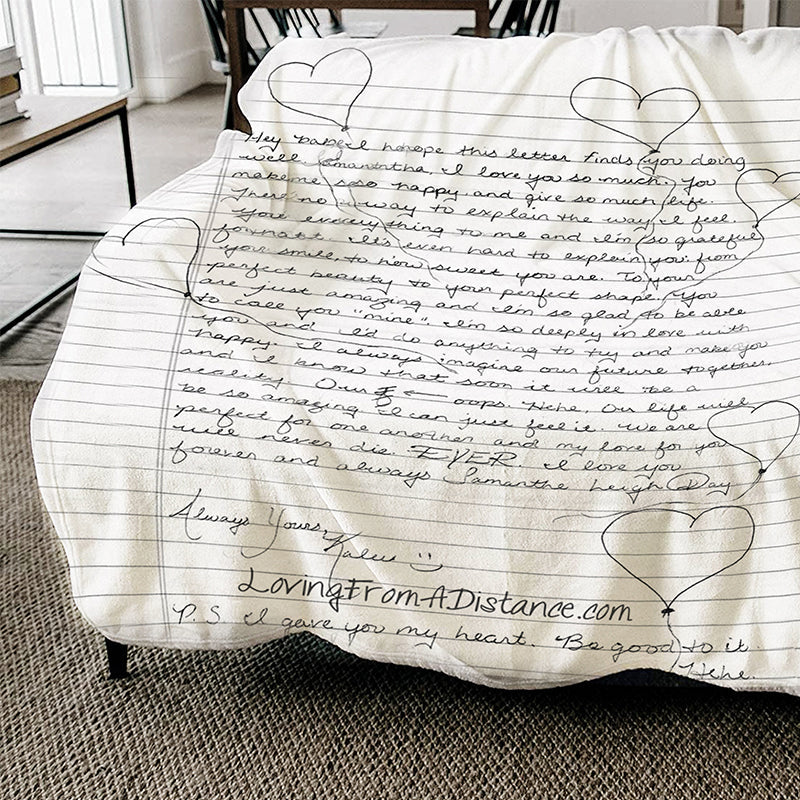 Hey babe I hohope this letter finds you doing
well Samanththa, I love you so much. You
makeme soso happy and give so much life.
There no way to explain the way I feel.
Your everything to me and I'm so grateful
for that. It's even hard to explain you: from
your smile, to how sweet you are. To your
perfect beauty to your perfect shape. You
are just amazing and I'm so glad to be able
to call you "mine". I'm so deeply in love with
you and I'd do anything to try and make you
happy. I always imagine our future together,
and I know that soon it will be a
reality. Our ← oops. Hehe. Our life will
be so amazing I can just feel it. We are
perfect for one another and my love for you
will never die. EVER. I love you
forever and always Samantha Leigh Day
Always Yours,
Kaleu :)
LovingFromADistance.com
P.S I gave you my heart. Be good to it.
Hehe.